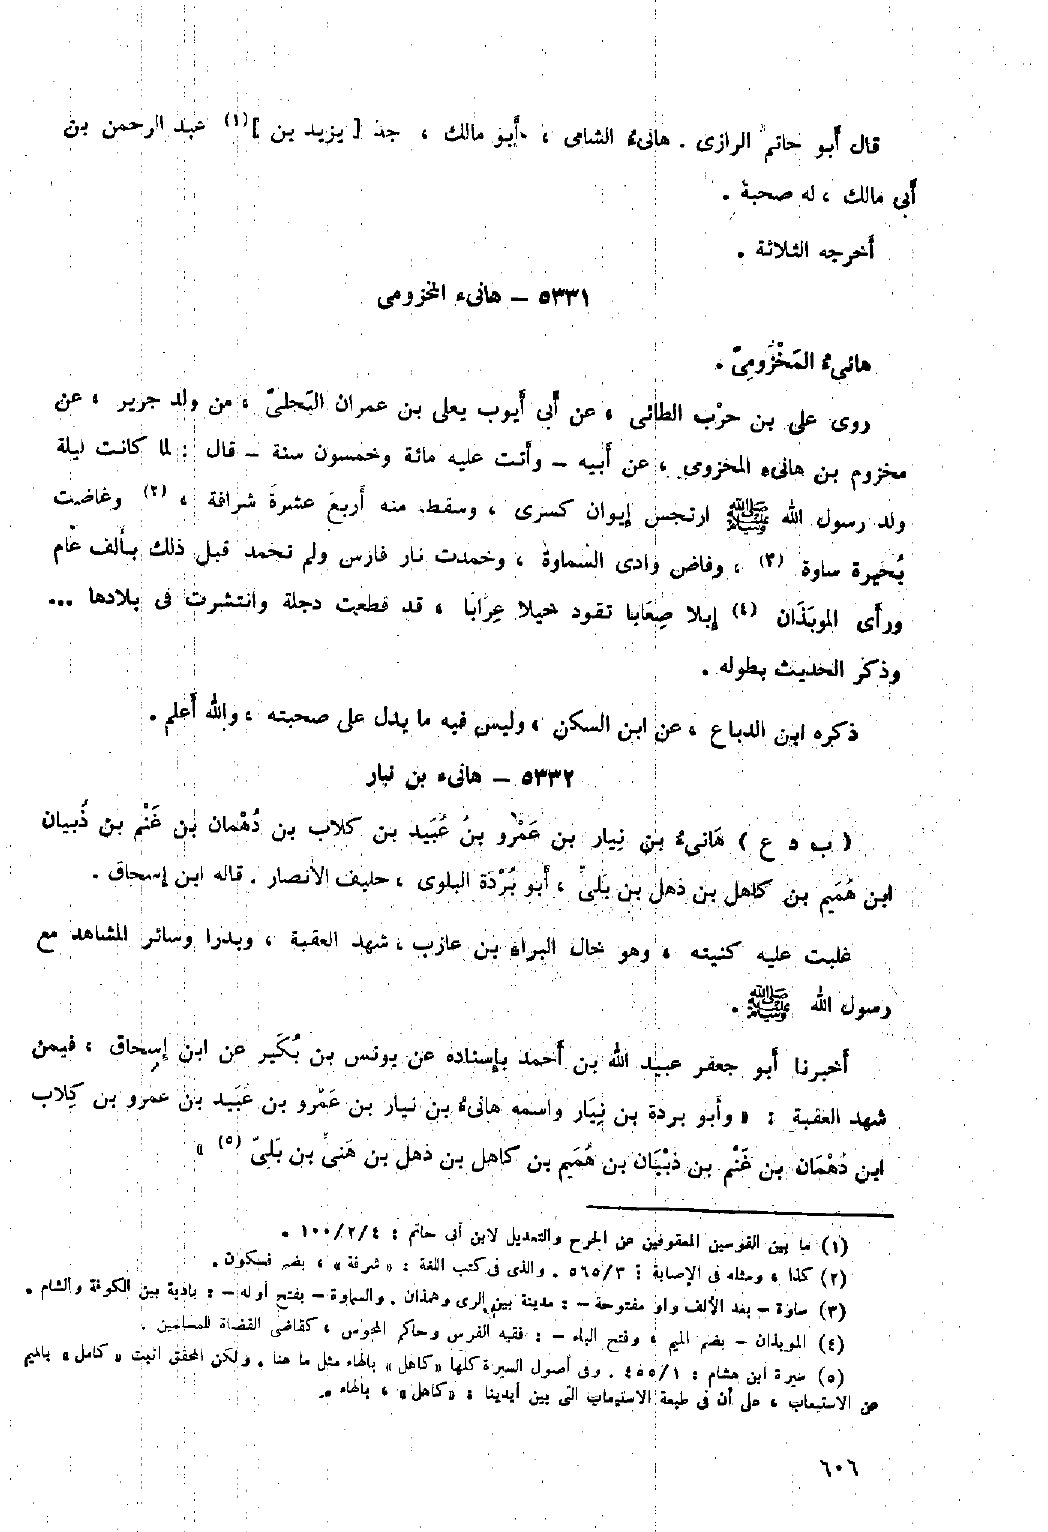 قال أبو حاتم الرازى . هانىء الشامى ، أبو مالك ، جد [ يزيد بن ](١) عبد الرحمن بن
أبى مالك ، له صحبة .
أخرجه الثلاثة .
٥٣٣١ – هانىء المخزومى
هانىءُ المَخْزُومِىّ .
روى على بن حرْب الطائى ، عن أبى أيوب يعلى بن عمران البَجلىّ ، من ولد جرير ، عن
مخزوم بن هانىء المخزومى ، عن أبيه – وأتت عليه مائة وخمسون سنة – قال : لما كانت ليلة
ولد رسول الله ﷺ ارتجس إيوان كسرى ، وسقط منه أربعَ عشرةَ شرافة ، (٢) وغاضت
بُحَيرة ساوة (٣) ، وفاض وادى السَّماوة ، وخمدت نار فارس ولم تخمد قبل ذلك بألف عام
ورأى الموبَذَان (٤) إبلا صِعَابا تقود خيلا عِرَابا ، قد قطعت دجلة وانتشرت فى بلادها ...
وذكر الحديث بطوله .
ذكره ابن الدباغ ، عن ابن السكن ، وليس فيه ما يدل على صحبته ، والله أعلم .
٥٣٣٢ – هانىء بن نيار
( ب د ع ) هَانىءُ بن نِيار بن عَمْرو بنُ عُبَيد بن كلاب بن دُهْمان بن غَنْم بن ذُبيان
ابن هُمَيم بن كاهل بن ذهل بن بَلىّ ، أبو بُرْدَة البلوى ، حليف الأنصار . قاله ابن إسحاق .
غلبت عليه كنيته ، وهو خال البراء بن عازب ، شهد العقبة ، وبدرا وسائر المشاهد مع
رسول الله ﷺ .
أخبرنا أبو جعفر عبيد الله بن أحمد بإسناده عن يونس بن بُكَير عن ابن إسحاق ، فيمن
شهد العقبة : « وأبو بردة بن نِيَار واسمه هانىءُ بن نيار بن عَمْرو بن عُبَيد بن عمرو بن كِلاب
ابن دُهْمَان بن غَنْم بن ذبْيَان بن هُمَيم بن كاهل بن ذهل بن هَنىّ بن بَلىّ (٥) »
(١) ما بين القوسين المعقوفين عن الجرح والتعديل لابن أبى حاتم : ١٠٠/٢/٤ .
(٢) كذا ، ومثله فى الإصابة : ٥٦٥/٣ . والذى فى كتب اللغة : « شرفة » ، بضم فسكون .
(٣) ساوة – بعد الألف واو مفتوحة – : مدينة بين الرى وهمذان . والسماوة – بفتح أوله – : بادية بين الكوفة والشام .
(٤) الموبذان – بضم الميم ، وفتح الباء – : فقيه الفرس وحاكم المجوس ، كقاضى القضاة للمسلمين .
(٥) سيرة ابن هشام : ٤٥٥/١ . وفى أصول السيرة كلها « كاهل » بالهاء مثل ما هنا . ولكن المحقق أثبت « كامل » بالميم
عن الاستيعاب ، على أن فى طبعة الاستيعاب التى بين أيدينا : « كاهل » ، بالهاء .
٦٠٦